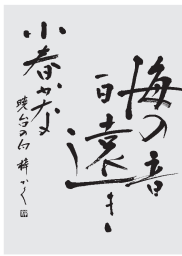 海の音
一日遠き
小春かな
暁台の句 梓かく